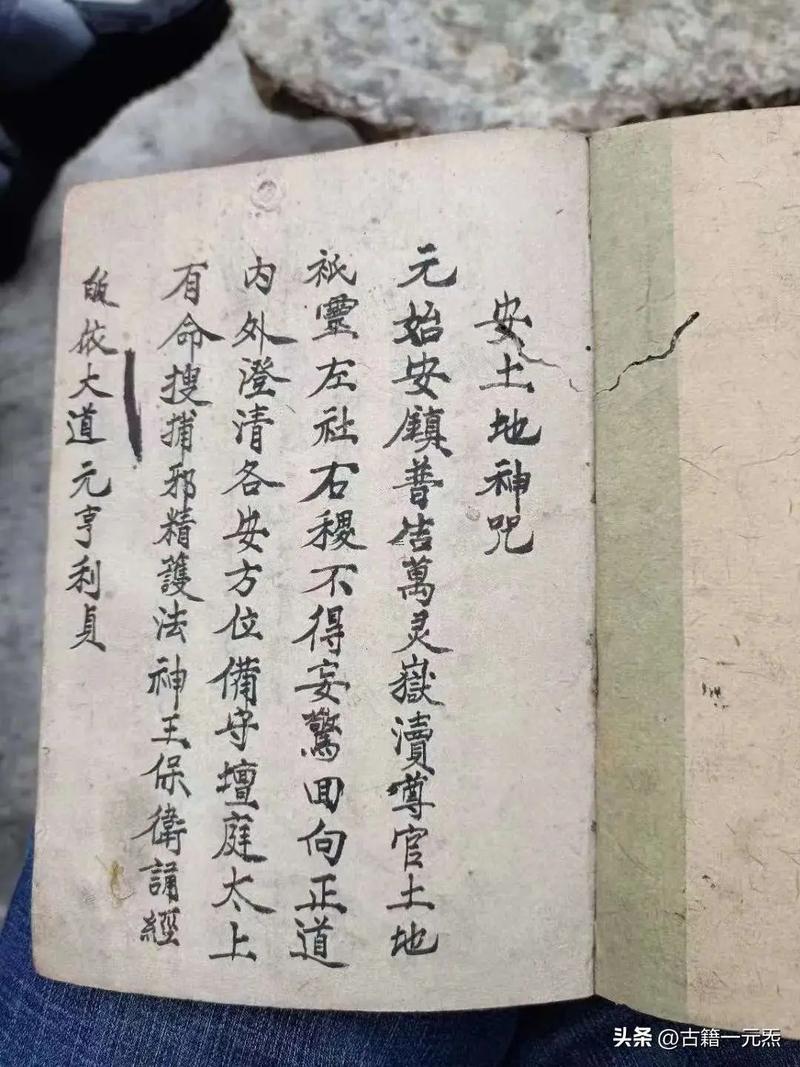 安土地神咒
元始安鎮普告萬灵嶽瀆尊官土地
祇靈左社右稷不得妄驚回向正道
内外澄清各安方位備守壇庭太上
有命搜捕邪精護法神王保衛誦經
皈依大道元亨利貞
头条 @古籍一元炁